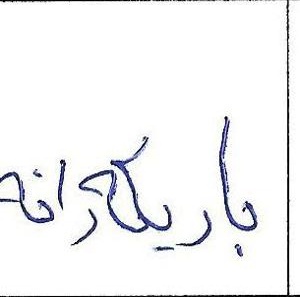 باریکترانه